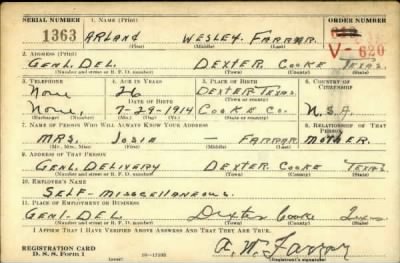 SERIAL NUMBER 1. NAME (Print) ORDER NUMBER
1363 ARLAND WESLEY FARRAR
(First) (Middle) (Last)
V-620
2. ADDRESS (Print)
GENL. DEL. DEXTER COOKE TEXAS
(Number and street or R. F. D. number) (Town) (County) (State)
3. TELEPHONE 4. AGE IN YEARS 5. PLACE OF BIRTH 6. COUNTRY OF CITIZENSHIP
None 26 DEXTER TEXAS
(Town or county)
DATE OF BIRTH
None 7-29-1914 COOKE CO. U.S.A.
(Exchange) (Number) (Mo.) (Day) (Yr.) (State or country)
7. NAME OF PERSON WHO WILL ALWAYS KNOW YOUR ADDRESS 8. RELATIONSHIP OF THAT PERSON
MRS. JOSIE — FARRAR MOTHER
(Mr., Mrs., Miss) (First) (Middle) (Last)
9. ADDRESS OF THAT PERSON
GENL. DELIVERY DEXTER COOKE TEXAS
(Number and street or R. F. D. number) (Town) (County) (State)
10. EMPLOYER'S NAME
SELF - MISCELLANEOUS.
11. PLACE OF EMPLOYMENT OR BUSINESS
GENL-DEL. Dexter Cooke Texas
(Number and street or R. F. D. number) (Town) (County) (State)
I AFFIRM THAT I HAVE VERIFIED ABOVE ANSWERS AND THAT THEY ARE TRUE.
REGISTRATION CARD
D. S. S. Form 1 (over) 16—17105
A. W. Farrar
(Registrant's signature)